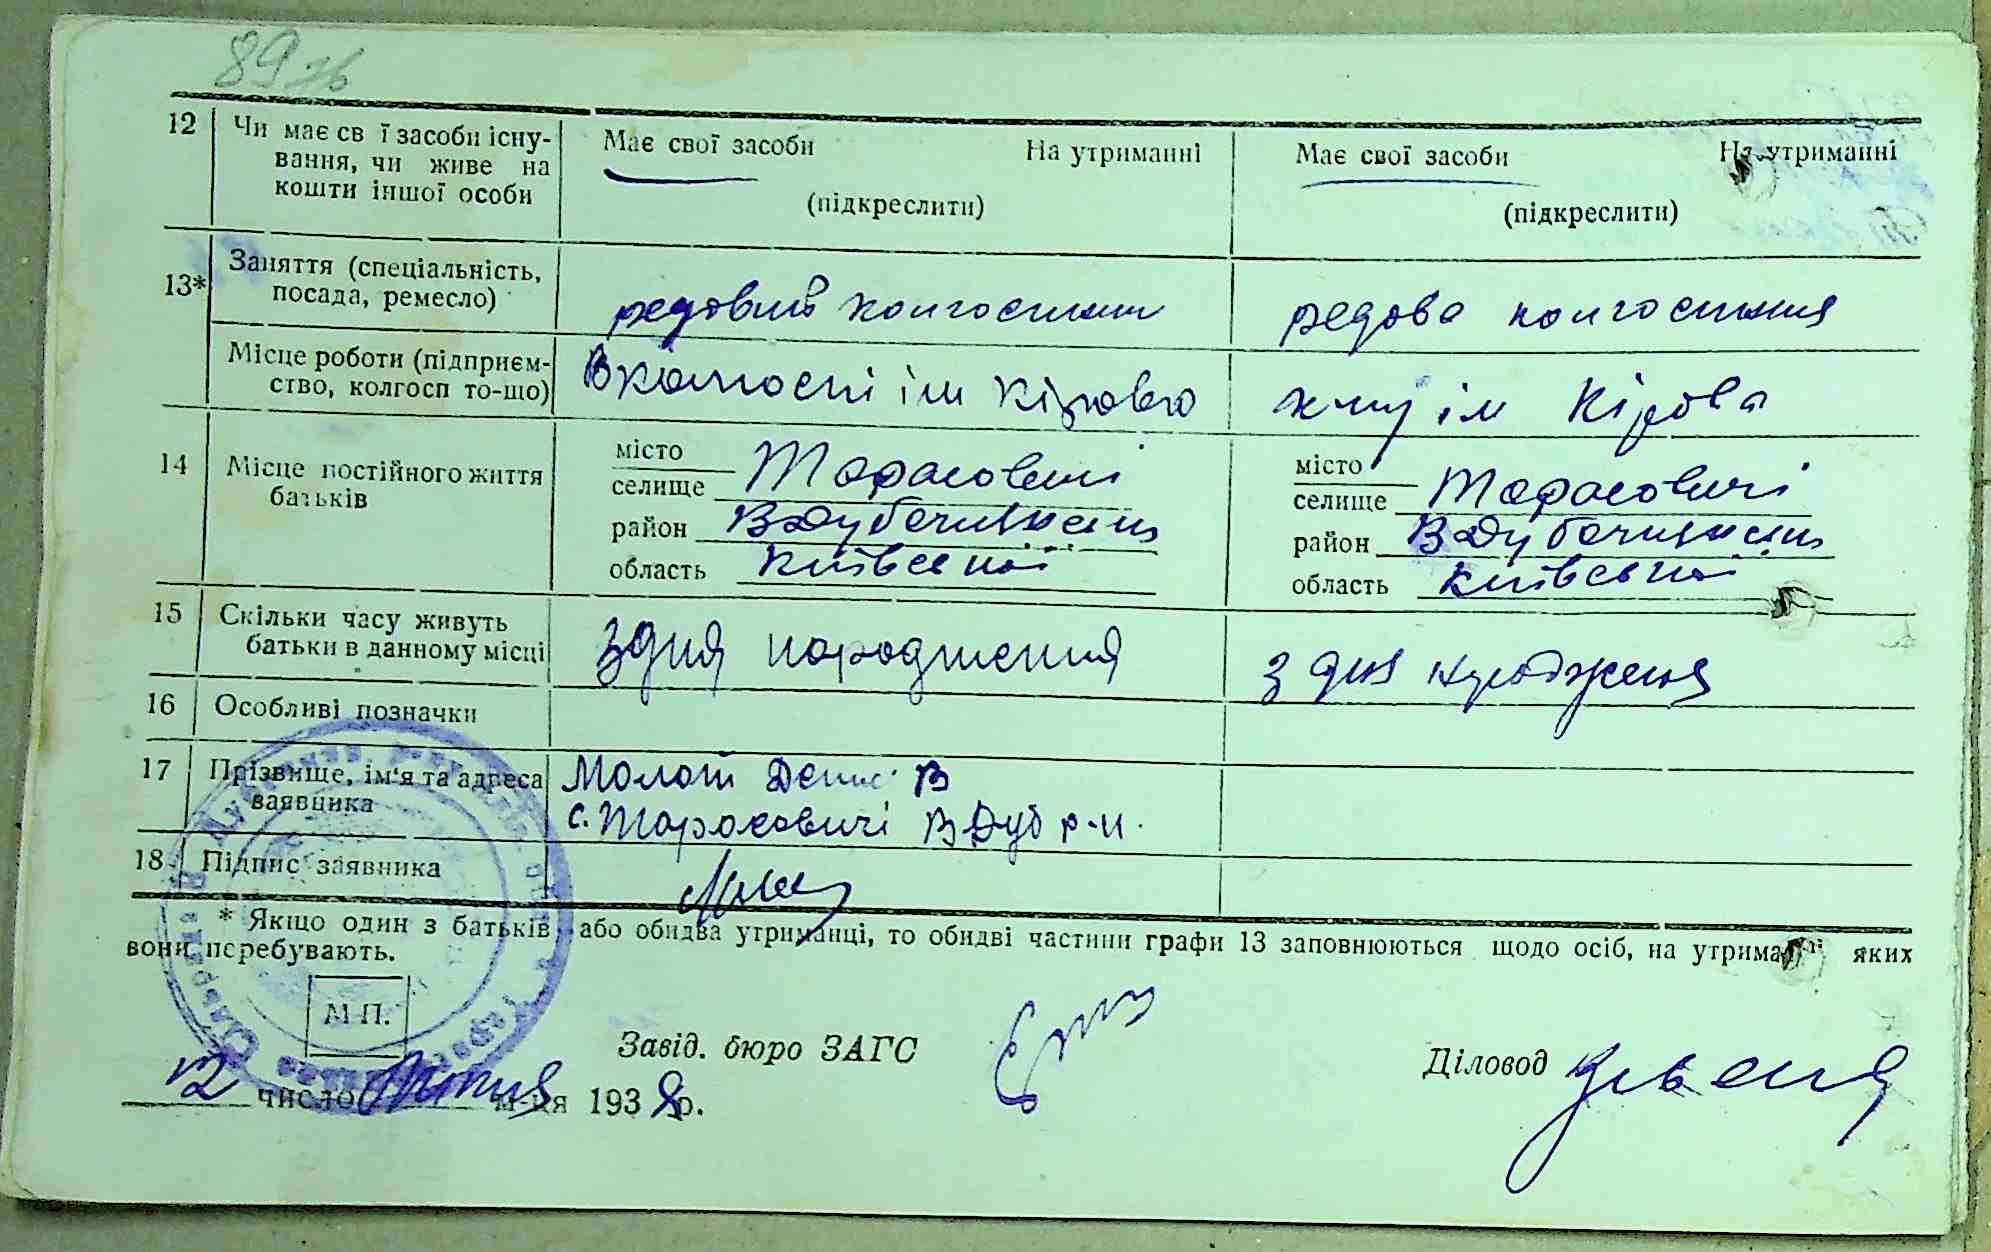 89 зв
12 Чи має св ї засоби існу- Має свої засоби На утриманні Має свої засоби На утриманні
вання, чи живе на
кошти іншої особи (підкреслити) (підкреслити)
13* Заняття (спеціальність,
посада, ремесло) редовий колгоспник редова колгоспниця
Місце роботи (підприєм-
ство, колгосп то-що) В колгоспі ім Кірова ім Кірова
14 Місце постійного життя
батьків
місто місто
селище Тарасовичі селище Тарасовичі
район ВДубечанським район ВДубечанським
область Київської область Київської
15 Скільки часу живуть
батьки в данному місці з дня народження з дня народженя
16 Особливі позначки
17 Прізвище, ім'я та адреса Молот Денис В
заявника с. Тарасовичі ВДуб р-н.
18 Підпис заявника
* Якщо один з батьків або обидва утриманці, то обидві частини графи 13 заповнюються щодо осіб, на утриманні яких
вони перебувають.
М П.
Завід. бюро ЗАГС Діловод
12 число м-ця 1938 р.